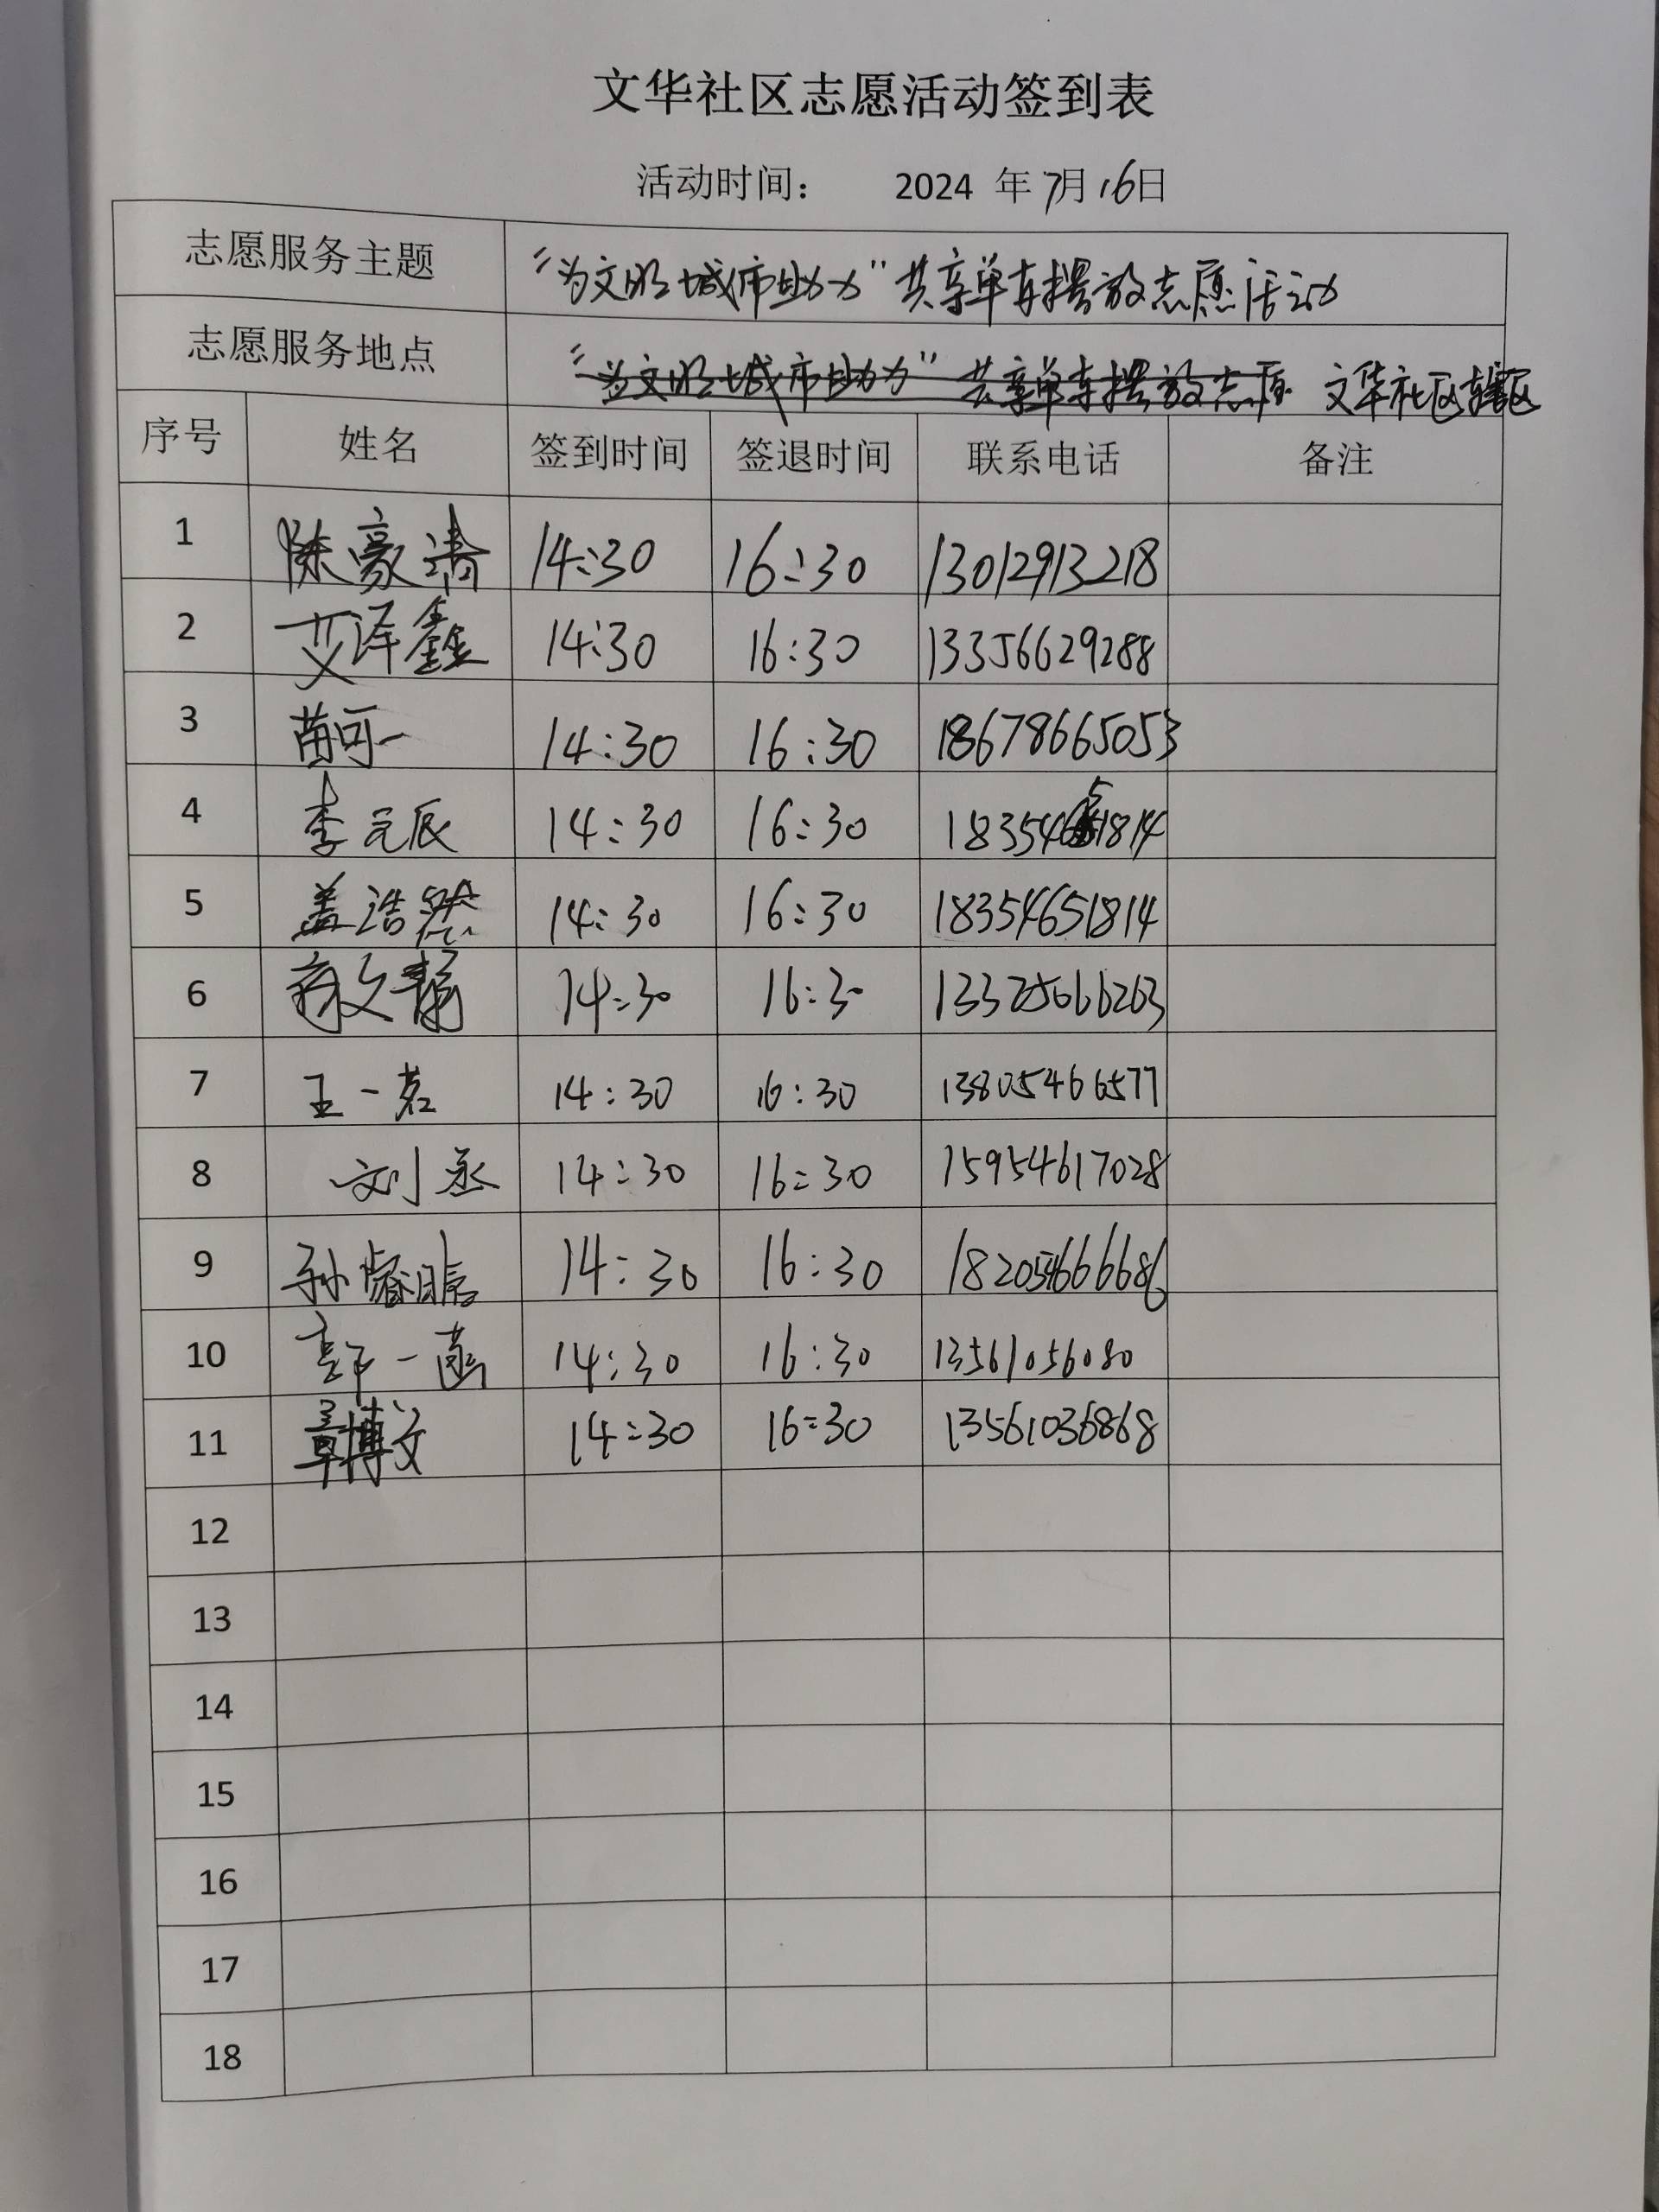 文华社区志愿活动签到表
活动时间： 2024 年 7月 16日
志愿服务主题 “为文明城市助力”共享单车摆放志愿活动
志愿服务地点 “为文明城市助力”共享单车摆放志愿 文华社区辖区
序号 姓名 签到时间 签退时间 联系电话 备注
1 陈豪清 14:30 16:30 13012913218
2 艾泽鑫 14:30 16:30 13356629288
3 苗可一 14:30 16:30 18678665053
4 李元辰 14:30 16:30 18354651814
5 盖浩然 14:30 16:30 18354651814
6 14:30 16:30 13325666263
7 王一茗 14:30 16:30 13805466577
8 刘丞 14:30 16:30 15954617028
9 孙睿晗 14:30 16:30 18205466686
10 一菡 14:30 16:30 13561056080
11 章博文 14:30 16:30 13561036868
12
13
14
15
16
17
18